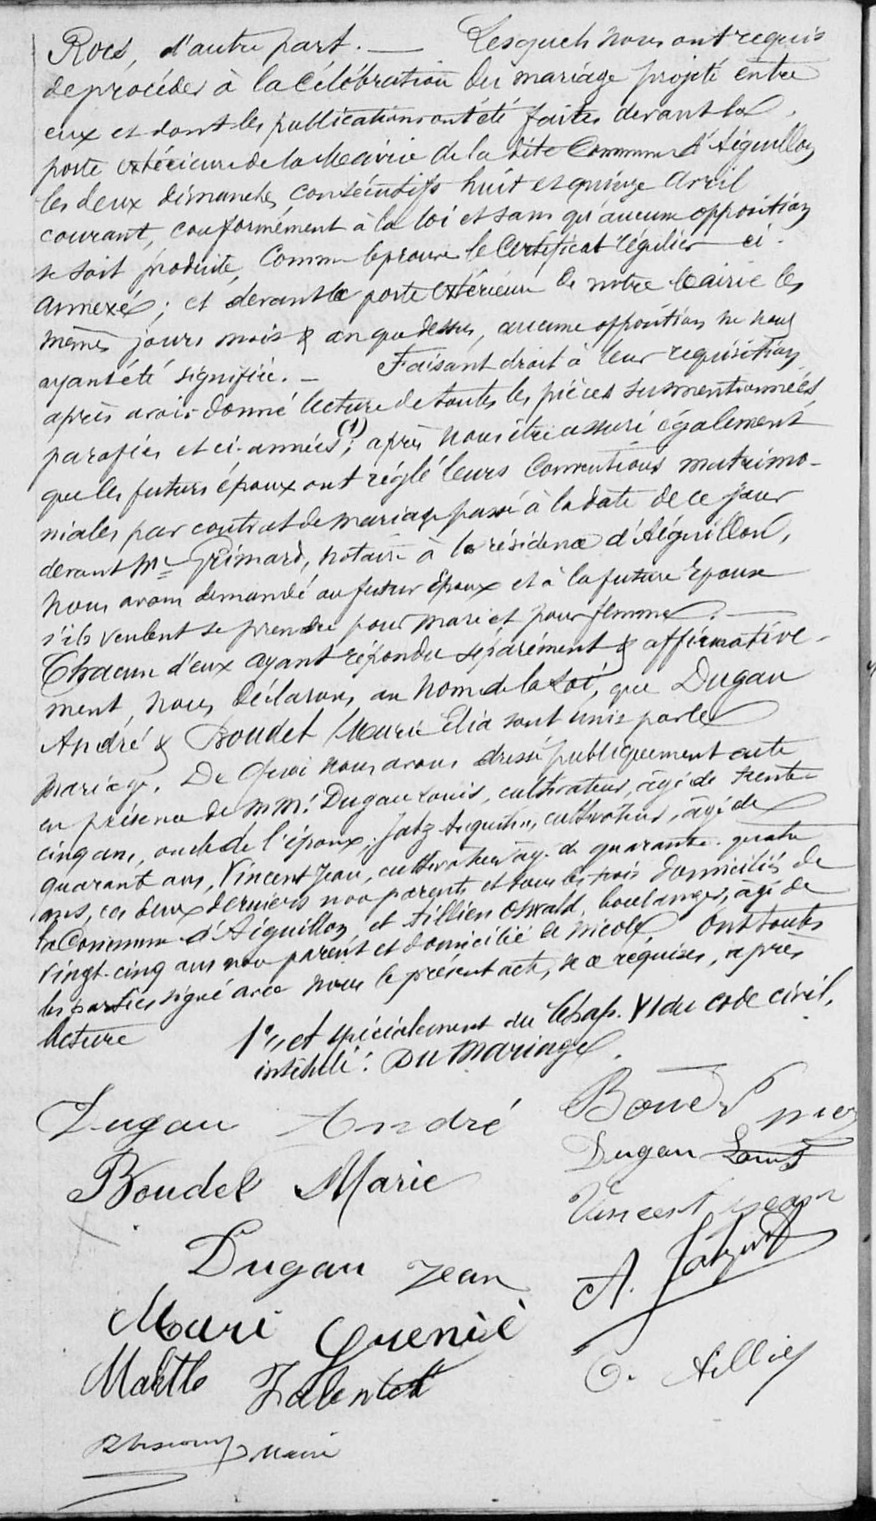 Rocs, d'autre part. — Lesquels nous ont requis
de procéder à la célébration du mariage projeté entre
eux et dont les publications ont été faites devant la
porte extérieure de la Mairie de la dite Commune d'Aiguillon
les deux dimanches consécutifs huit et quinze avril
courant, conformément à la loi et sans qu'aucune opposition
se soit produite, comme le prouve le certificat régulier ci-
annexé; et devant la porte extérieure de notre Mairie les
mêmes jours mois & an que dessus, aucune opposition ne nous
ayant été signifiée. — Faisant droit à leur requisition
après avoir donné lecture de toutes les pièces susmentionnées
parafées et ci-années (1); après nous être assuré également
que les futurs époux ont réglé leurs conventions matrimo-
niales par contrat de mariage passé à la date de ce jour
devant Me Grimard, notaire à la résidence d'Aiguillon,
nous avons demandé au futur époux et à la future épouse
s'ils veulent se prendre pour mari et pour femme. —
Chacun d'eux ayant répondu séparément & affirmative-
ment, nous déclarons, au nom de la Loi, que Dugau
André & Boudet Marie Elia sont unis par le
mariage. De quoi nous avons dressé publiquement acte
en présence de MM: Dugau Louis, cultivateur, âgé de trente
cinq ans, oncle de l'époux; Augustin, cultivateur, âgé de
quarant ans, Vincent Jean, cultivateur âgé de quarante-quatre
ans, ces deux derniers non parents et tous les trois domiciliés de
la Commune d'Aiguillon et Tillien Oswald, boulanger, âgé de
vingt-cinq ans non parent et domicilié de Nicole Ont toutes
les parties signé avec nous le présent acte, de ce réquises, après
lecture
1° "et spécialement du Chap. VI du code civil,
intitulé: Du Mariage.
Dugau André
Boudet
Boudet Marie
Dugau Louis
Vincent Jean
Dugau Jean
A.
Mari
Marthe
O. Tillien
Maire